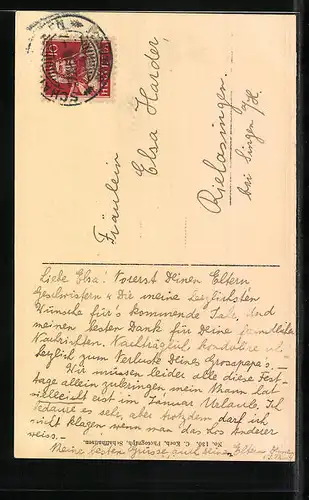 HELVETIA
Fräulein
Elsa Harder,
Rielasingen.
bei Singen a/H.
Liebe Elsa! Vorerst Deinen Eltern
Geschwistern & Dir meine herzlichsten
Wünsche für's kommende Jahr, und
meinen besten Dank für Deine freundliche
Nachrichten. Nachträglich kondoliere
herzlich zum Verluste Deines Grosspapa's. –
Wir müssen leider alle diese Fest-
tage allein zubringen mein Mann hat
vielleicht erst im Januar Urlaub. Ich
bedaure es sehr, aber trotzdem darf ich
nicht klagen wenn man das Los Anderer
weiss. –
Meine besten Grüsse, auch deinen Eltern
No. 150. C. Koch, Photograph, Schaffhausen.